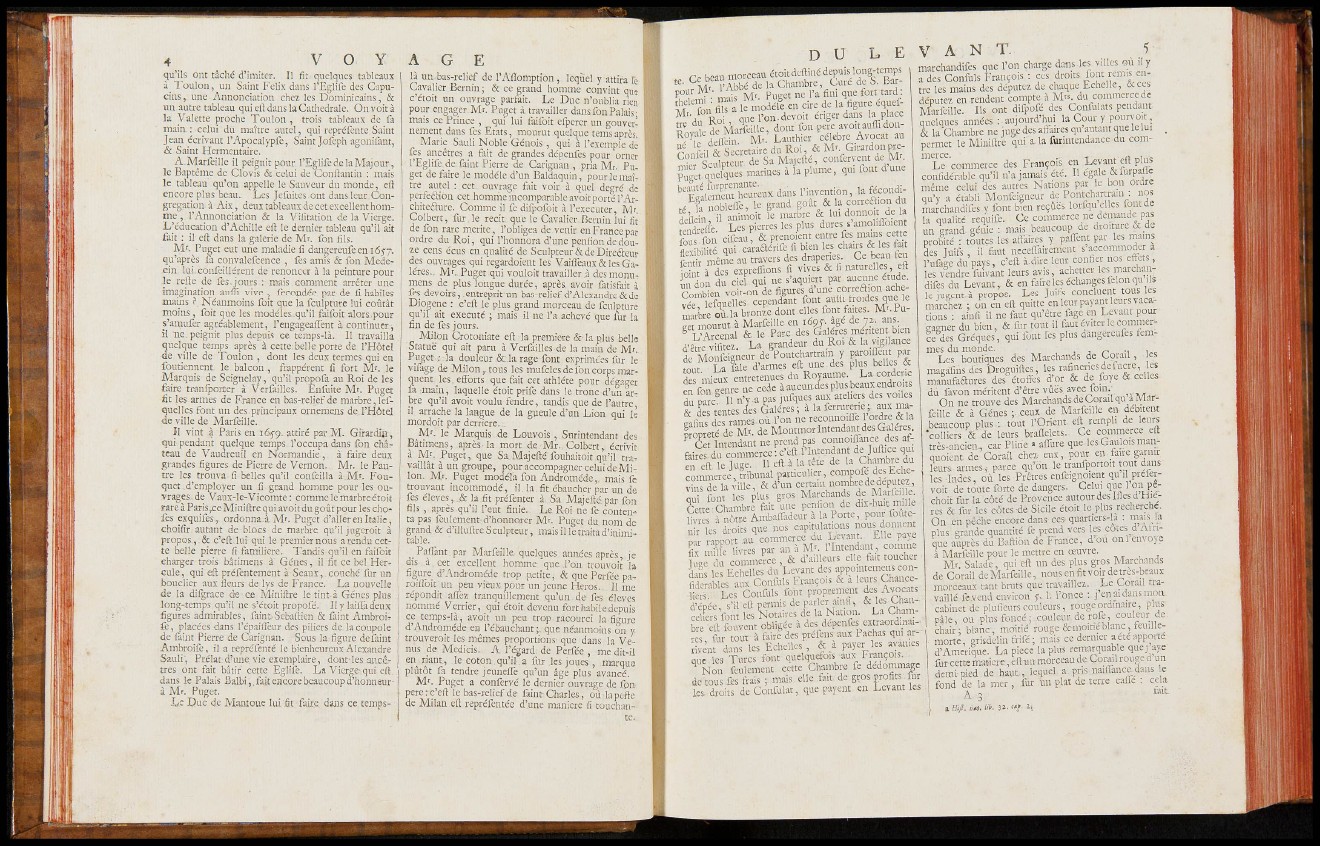 4 VOYAGE
qu'ils ont tâché d'imiter. Il fit quelques tableaux
à Toulon, un Saint Felix dans l'Egliſe des Capu-
cins, une Annonciation chez les Dominicains, &
un autre tableau qui eſt dans la Cathedrale. On voit à
la Valette proche Toulon, trois tableaux de ſa
main : celui du maître autel, qui repréſente Saint
Jean écrivant l'Apocalypſe, Saint Joſeph agoniſant,
& Saint Hermentaire.
A Marſeille il peignit pour l'Egliſe de la Majour,
le Baptême de Clovis & celui de Conſtantin : mais
le tableau qu'on appelle le Sauveur du monde, eſt
encore plus beau. Les Jeſuites ont dans leur Con-
gregation à Aix, deux tableaux de cet excellent hom-
me, l'Annonciation & la Viſitation de la Vierge.
L'éducation d'Achille eſt le dernier tableau qu'il ait
fait : il eſt dans la galérie de Mr. ſon fils.
Mr. Puget eut une maladie ſi dangereuſe en 1657.
qu'après ſa convaleſcence, ſes amis & ſon Mede-
cin lui conſeillérent de renoncer à la peinture pour
le reſte de ſes jours : mais comment arrêter une
imagination auſſi vive, ſecondée par de ſi habiles
mains ? Néanmoins ſoit que la ſculpture lui coûtât
moins, ſoit que les modéles qu'il faiſoit alors pour
s'amuſer agréablement, l'engageaſſent à continuer,
il ne peignit plus depuis ce temps-là. Il travailla
quelque temps après à cette belle porte de l'Hôtel
de ville de Toulon, dont les deux termes qui en
ſoutiennent le balcon, frappérent ſi fort Mr. le
Marquis de Seignelay, qu'il propoſa au Roi de les
faire tranſporter à Verſailles. Enſuite Mr. Puget
fit les armes de France en bas-relief de marbre, leſ-
quelles font un des principaux ornemens de l'Hôtel
de ville de Marſeille.
Il vint à Paris en 1659. attiré par M. Girardin,
qui pendant quelque temps l'occupa dans ſon châ-
teau de Vaudreuil en Normandie, à faire deux
grandes figures de Pierre de Vernon. Mr. le Pau-
tre les trouva ſi belles qu'il conſeilla à Mr. Fou-
quet d'employer un ſi grand homme pour les ou-
vrages de Vaux-le-Vicomte : comme le marbre étoit
rare à Paris, ce Miniſtre qui avoit du goût pour les cho-
ſes exquiſes, ordonna à Mr. Puget d'aller en Italie,
choiſir autant de blocs de marbre qu'il jugeroit à
propos, & c'eſt lui qui le premier nous a rendu cet-
te belle pierre ſi familiere. Tandis qu'il en faiſoit
charger trois bâtimens à Génes, il fit ce bel Her-
cule, qui eſt préſentement à Seaux, couché ſur un
bouclier aux fleurs de lys de France. La nouvelle
de la diſgrace de ce Miniſtre le tint à Génes plus
long-temps qu'il ne s'étoit propoſé. Il y laiſſa deux
figures admirables, ſaint Sebaſtien & ſaint Ambroi-
ſe, placées dans l'épaiſſeur des piliers de la coupole
de ſaint Pierre de Carignan. Sous la figure de ſaint
Ambroiſe, il a repréſenté le bienheureux Alexandre
Sauli, Prélat d'une vie exemplaire, dont les ancê-
tres ont fait bâtir cette Egliſe. La Vierge qui eſt
dans le Palais Balbi, fait encore beaucoup d'honneur
à Mr. Puget.
Le Duc de Mantoue lui fit faire dans ce temps-
là un bas-relief de l'Aſſomption, lequel y attira le
Cavalier Bernin ; & ce grand homme convint que
c'étoit un ouvrage parfait. Le Duc n'oublia rien
pour engager Mr. Puget à travailler dans ſon Palais ;
mais ce Prince, qui lui faiſoit eſperer un gouver-
nement dans ſes Etats, mourut quelque tems après.
Marie Sauli Noble Génois, qui à l'exemple de
ſes ancêtres a fait de grandes dépenſes pour orner
l'Egliſe de ſaint Pierre de Carignan, pria Mr. Pu-
get de faire le modéle d'un Baldaquin, pour le maî-
tre autel : cet ouvrage fait voir à quel degré de
perfection cet homme incomparable avoit porté l'Ar-
chitecture. Comme il ſe diſpoſoit à l'executer, Mr.
Colbert, ſur le recit que le Cavalier Bernin lui fit
de ſon rare merite, l'obligea de venir en France par
ordre du Roi, qui l'honnora d'une penſion de dou-
ze cens écus en qualité de Sculpteur & de Directeur
des ouvrages qui regardoient les Vaiſſeaux & les Ga-
léres. Mr. Puget qui vouloit travailler à des monu-
mens de plus longue durée, après avoir ſatisfait à
ſes devoirs, entreprit un bas relief d'Alexandre & de
Diogene : c'eſt le plus grand morceau de ſculpture
qu'il ait executé ; mais il ne l'a achevé que ſur la
fin de ſes jours.
Milon Crotoniate eſt la première & la plus belle
Statuë qui ait paru à Verſailles de la main de Mr.
Puget : la douleur & la rage ſont exprimées ſur le
viſage de Milon, tous les muſcles de ſon corps mar-
quent les efforts que fait cet athléte pour dégager
ſa main, laquelle étoit priſe dans le tronc d'un ar-
bre qu'il avoit voulu fendre, tandis que de l'autre,
il arrache la langue de la gueule d'un Lion qui le
mordoit par derriere.
Mr. le Marquis de Louvois, Surintendant des
Bâtimens, après la mort de Mr. Colbert, écrivit
à Mr. Puget, que Sa Majeſté ſouhaitoit qu'il tra-
vaillât à un groupe, pour accompagner celui de Mi-
lon. Mr. Puget modéla ſon Andromède, mais ſe
trouvant incommodé, il la fit ébaucher par un de
ſes éleves, & la fit préſenter à Sa Majeſté par ſon
fils, après qu'il l'eut finie. Le Roi ne ſe conten-
ta pas ſeulement d'honnorer Mr. Puget du nom de
grand & d'illuſtre Sculpteur, mais il le traita d'inimi-
table.
Paſſant par Marſeille quelques années après, je
dis à cet excellent homme que l'on trouvoit ſa
figure d'Androméde trop petite, & que Perſée pa-
roiſſoit un peu vieux pour un jeune Heros. Il me
répondit aſſez tranquillement qu'un de ſes éleves
nommé Verrier, qui étoit devenu fort habile depuis
ce temps-là, avoit un peu trop racourci la figure
d'Androméde en l'ébauchant ; que néanmoins on y
trouveroit les mêmes proportions que dans la Vé-
nus de Medicis. A l'égard de Perſée, me dit-il
en riant, le coton qu'il a ſur les joues, marque
plûtôt ſa tendre jeuneſſe qu'un âge plus avancé.
Mr. Puget a conſervé le dernier ouvrage de ſon
pere : c'eſt le bas-relief de ſaint Charles, où la peſte
de Milan eſt repréſentée d'une maniere ſi touchan-
te.
DU LEVANT. 5
te. Ce beau morceau étoit deſtiné depuis long-temps
pour Mr. l'Abbé de la Chambre, Curé de S. Bar-
thelemi : mais Mr. Puget ne l'a fini que fort tard :
Mr. ſon fils a le modéle en cire de la figure équeſ-
tre du Roi, que l'on devoit ériger dans la place
Royale de Marſeille, dont ſon pere avoit auſſi don-
né le deſſein. Mr. Lauthier célébre Avocat au
Conſeil & Secretaire du Roi, & Mr. Girardon pre-
mier Sculpteur de Sa Majeſté, conſervent de Mr.
Puget quelques marines à la plume, qui ſont d'une
beauté ſurprenante.
Egalement heureux dans l'invention, la fécondi-
té, la nobleſſe, le grand goût & la correction du
deſſein, il animoit le marbre & lui donnoit de la
tendreſſe. Les pierres les plus dures s'amoliſſoient
ſous ſon ciſeau, & prenoient entre ſes mains cette
flexibilité qui caractériſe ſi bien les chairs & les fait
ſentir même au travers des draperies. Ce beau feu
joint à des expreſſions ſi vives & ſi naturelles, eſt
un don du ciel qui ne s'aquiert par aucune étude.
Combien voit-on de figures d'une correction ache-
vée, leſquelles cependant ſont auſſi froides que le
marbre ou la bronze dont elles ſont faites. Mr. Pu-
get mourut à Marſeille en 1695. âgé de 72. ans.
L'Arcenal & le Parc des Galéres méritent bien
d'être viſitez. La grandeur du Roi & la vigilance
de Monſeigneur de Pontchartrain y paroiſſent par
tout. La ſale d'armes eſt une des plus belles &
des mieux entretenues du Royaume. La corderie
en ſon genre ne céde à aucun des plus beaux endroits
du parc. Il n'y a pas juſques aux ateliers des voiles
& des tentes des Galéres ; à la ferrurerie ; aux ma-
gaſins des rames où l'on ne reconnoiſſe l'ordre & la
propreté de Mr. de Montmor Intendant des Galéres.
Cet Intendant ne prend pas connoiſſance des af-
faires du commerce : c'eſt l'Intendant de Juſtice qui
en eſt le Juge. Il eſt à la tête de la Chambre du
commerce, tribunal particulier, compoſé des Eche-
vins de la ville, & d'un certain nombre de députez,
qui ſont les plus gros Marchands de Marſeille.
Cette Chambre fait une penſion de dix-huit mille
livres à nôtre Ambaſſadeur à la Porte, pour ſoûte-
nir les droits que nos capitulations nous donnent
par rapport au commerce du Levant. Elle paye
ſix mille livres par an à Mr. l'Intendant, comme
Juge du commerce, & d'ailleurs elle fait toucher
dans les Echelles du Levant des appointemens con-
ſiderables aux Conſuls François & à leurs Chance-
liers. Les Conſuls ſont proprement des Avocats
d'épée, s'il eſt permis de parler ainſi, & les Chan-
celiers ſont les Notaires de la Nation. La Cham-
bre eſt ſouvent obligée à des dépenſes extraordinai-
res, ſur tout à faire des préſens aux Pachas qui ar-
rivent dans les Echelles, & à payer les avanies
que les Turcs font quelquefois aux François.
Non ſeulement cette Chambre ſe dédommage
de tous ſes frais ; mais elle fait de gros profits ſur
les droits de Conſulat, que payent en Levant les
marchandiſes que l'on charge dans les villes où il y
a des Conſuls François : ces droits ſont remis en-
tre les mains des députez de chaque Echelle, & ces
députez en rendent compte à Mrs. du commerce de
Marſeille. Ils ont diſpoſé des Conſulats pendant
quelques années : aujourd'hui la Cour y pourvoit,
& la Chambre ne juge des affaires qu'autant que le lui
permet le Miniſtre qui a la ſurintendance du com-
merce.
Le commerce des François en Levant eſt plus
conſidérable qu'il n'a jamais été. Il égale & ſurpaſſe
même celui des autres Nations par le bon ordre
qu'y a établi Monſeigneur de Pontchartrain : nos
marchandiſes y ſont bien reçûës lorſqu'elles ſont de
la qualité requiſe. Ce commerce ne demande pas
un grand génie : mais beaucoup de droiture & de
probité : toutes les affaires y paſſent par les mains
des Juifs, il faut neceſſairement s'accommoder à
l'uſage du pays, c'eſt à dire leur confier nos effets,
les vendre ſuivant leurs avis, achetter les marchan-
diſes du Levant, & en faire les échanges ſelon qu'ils
le jugent à propos. Les Juifs concluent tous les
marchez ; on en eſt quitte en leur payant leurs vaca-
tions : ainſi il ne faut qu'être ſage en Levant pour
gagner du bien, & ſur tout il faut éviter le commer-
ce des Gréques, qui ſont les plus dangereuſes fem-
mes du monde.
Les boutiques des Marchands de Corail, les
magaſins des Droguiſtes, les rafineries de ſucre, les
manufactures des étoffes d'or & de ſoye & celles
du ſavon méritent d'être vûës avec ſoin.
On ne trouve des Marchands de Corail qu'à Mar-
ſeille & à Génes ; ceux de Marſeille en débitent
beaucoup plus : tout l'Orient eſt rempli de leurs
colliers & de leurs braſſelets. Ce commerce eſt
très-ancien, car Pline a aſſure que les Gaulois man-
quoient de Corail chez eux, pour en faire garnir
leurs armes, parce qu'on le tranſportoit tout dans
les Indes, où les Prêtres enſeignoient qu'il préſer-
voit de toute ſorte de dangers. Celui que l'on pê-
choit ſur la côté de Provence autour des Iſles d'Hié-
res & ſur les côtes de Sicile étoit le plus recherché.
On en pêche encore dans ces quartiers-là : mais la
plus grande quantité ſe prend vers les côtes d'Afri-
que auprès du Baſtion de France, d'où on l'envoye
à Marſeille pour le mettre en œuvre.
Mr. Salade, qui eſt un des plus gros Marchands
de Corail de Marſeille, nous en fit voir de très-beaux
morceaux tant bruts que travaillez. Le Corail tra-
vaillé ſe vend environ 5. l. l'once : j'en ai dans mon
cabinet de pluſieurs couleurs, rouge ordinaire, plus
pâle, ou plus foncé ; couleur de roſe, couleur de
chair, blanc, moitié rouge & moitié blanc, feuille-
morte, griſdelin triſé ; mais ce dernier a été apporté
d'Amerique. La piece la plus remarquable que j'aye
ſur cette matiere, eſt un morceau de Corail rouge d'un
demi pied de haut, lequel a pris naiſſance dans le
fond de la mer, ſur un plat de terre caſſé : cela
A 3 fait
a Hiſt. nat. lib. 32. cap. 2.